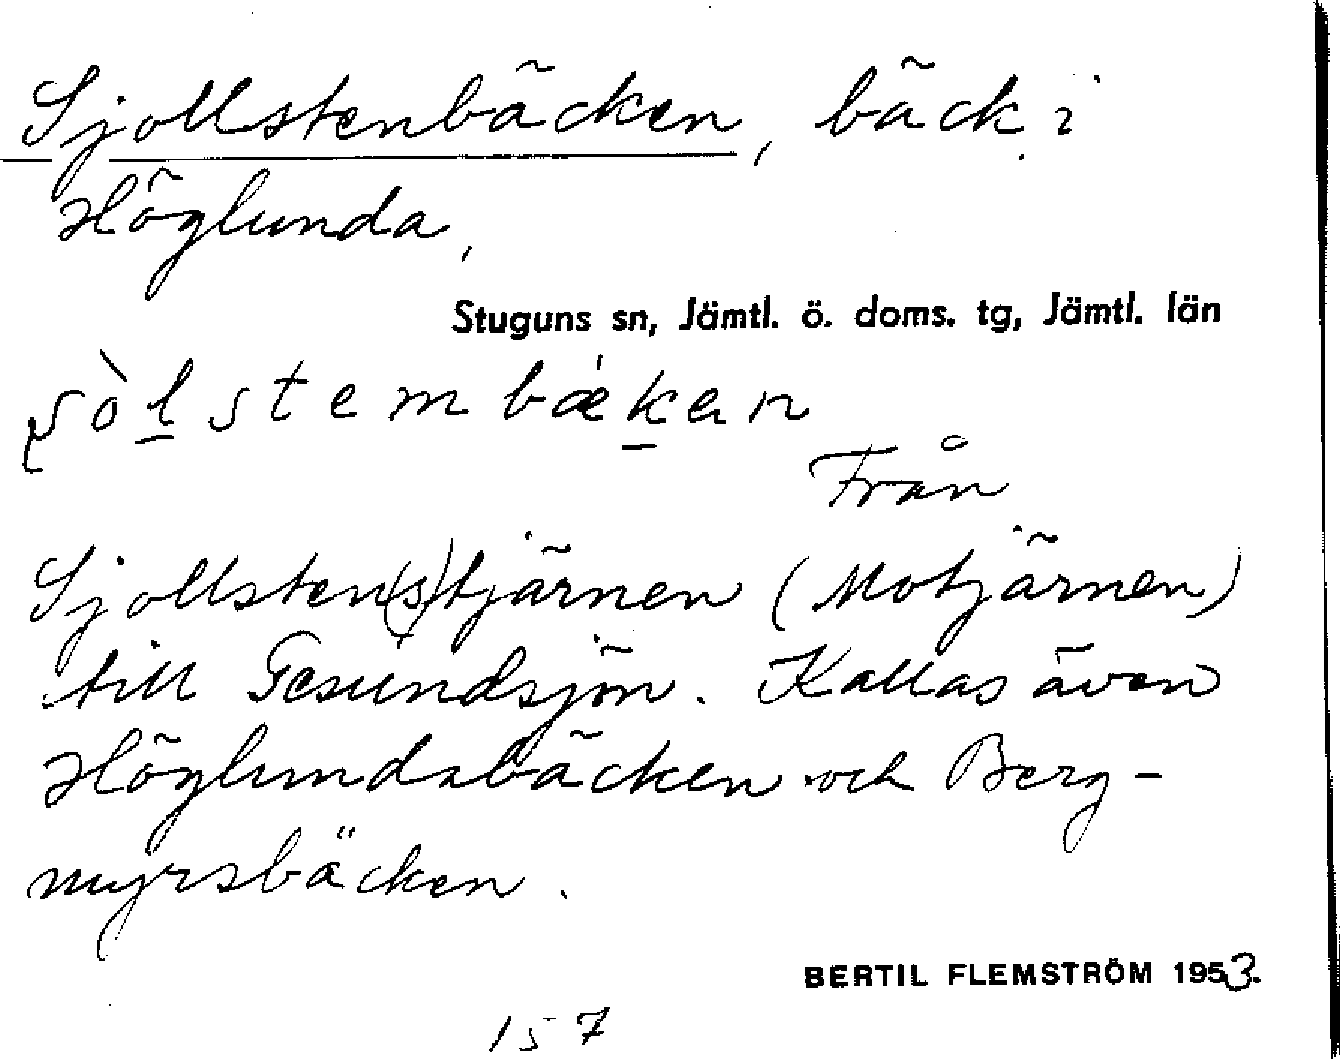 Sjollstenbäcken, bäck i
Höglunda,
Stuguns sn, Jämtl. ö. doms. tg, Jämtl. län
ʂòl̲stembæ̀k̲an
Från
Sjollsten(s)tjärnen (Motjärnen)
till Gesundsjön. Kallas även
Höglundabäcken och Berg-
myrsbäcken.
BERTIL FLEMSTRÖM 1953.
157